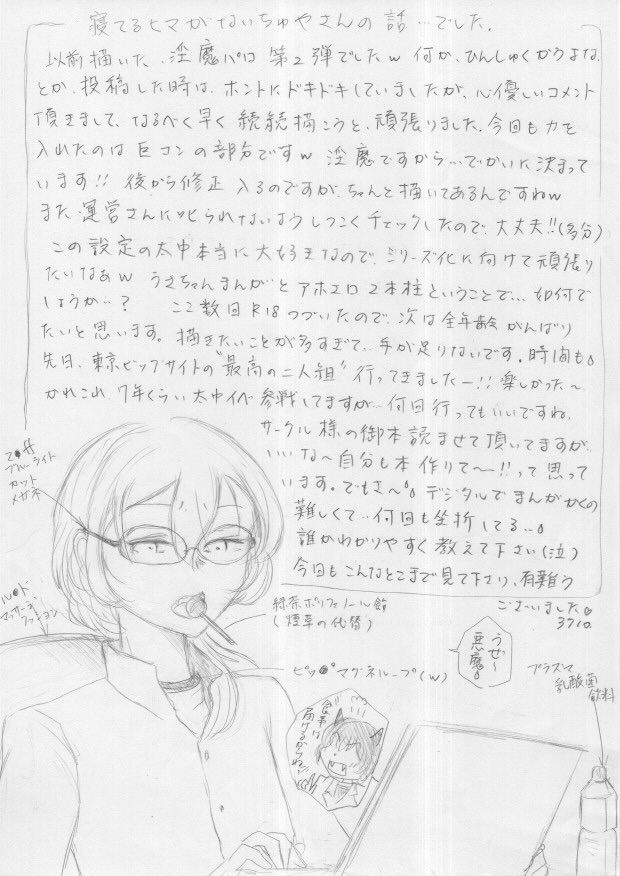 寝てるヒマがないちゅやさんの話…でした。
以前描いた、淫魔パロ 第2弾でしたw 何か、ひんしゅくかうよな、
とか、投稿した時は、ホントにドキドキしていましたが、心優しいコメント
頂きまして、なるべく早く 続続描こうと、頑張りました。今回も力を
入れたのは 巨コンの部分ですw 淫魔ですから…でかいに決まって
います!! 後から修正 入るのですが、ちゃんと描いてあるんですねw
また、運営さんに叱られないようしつこくチェックしたので、大丈夫!!(多分)
この設定の太中本当に大好きなので、シリーズ化に向けて頑張り
たいなぁw うさちゃんまんが と アホエロ 2本柱ということで… 如何で
しょうか…? ここ数回R18つづいたので、次は全年齢 がんばり
たいと思います。描きたいことが多すぎて、手が足りないです。時間も。
先日、東京ビップサイトの"最高の二人組"行ってきましたー!! 楽しかった〜
かれこれ、7年くらい太中イベ 参戦してますが…何回行ってもいいですね。
サークル様の御本読ませて頂いてますが、
いいな〜自分も本 作りて〜〜!! って思って
います。でもさ〜。デジタルでまんがかくの
難しくて…何回も坐折してる…。
誰かわかりやすく教えて下さい(泣)
今回もこんなとこまで見て下さり、有難う
ございました。
3710.
ブルーライト
カット
メガネ
マッサージ
緑茶ポリフェノール飴
(煙草の代替)
ピッ●マグネループ(w)
うぜ〜
悪魔。
食事は
届けるからね
プラズマ
乳酸菌
飲料